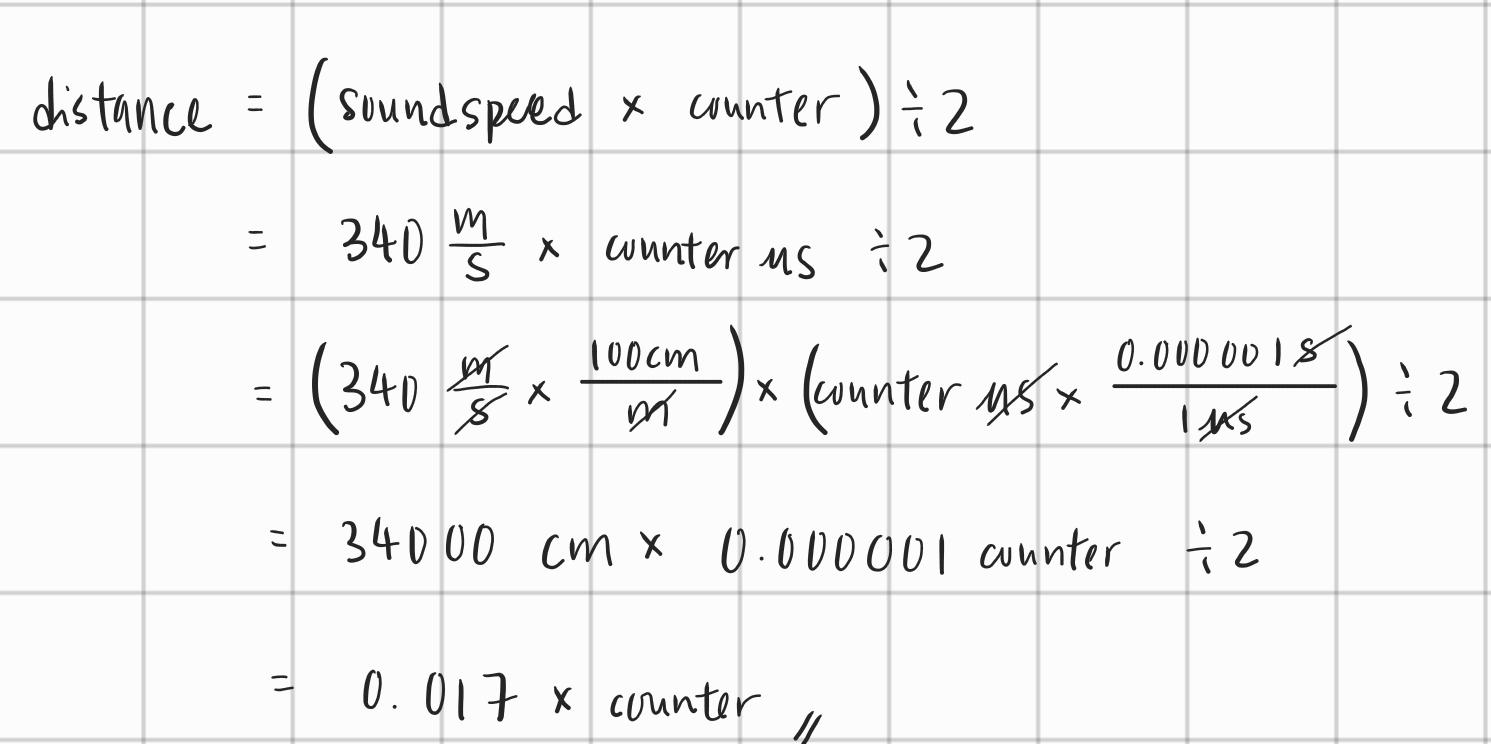 distance = (soundspeed × counter) ÷ 2
= 340 m/s × counter us ÷ 2
= (340 m/s × 100cm/m) × (counter us × 0.000001s/1us) ÷ 2
= 34000 cm × 0.000001 counter ÷ 2
= 0.017 × counter //